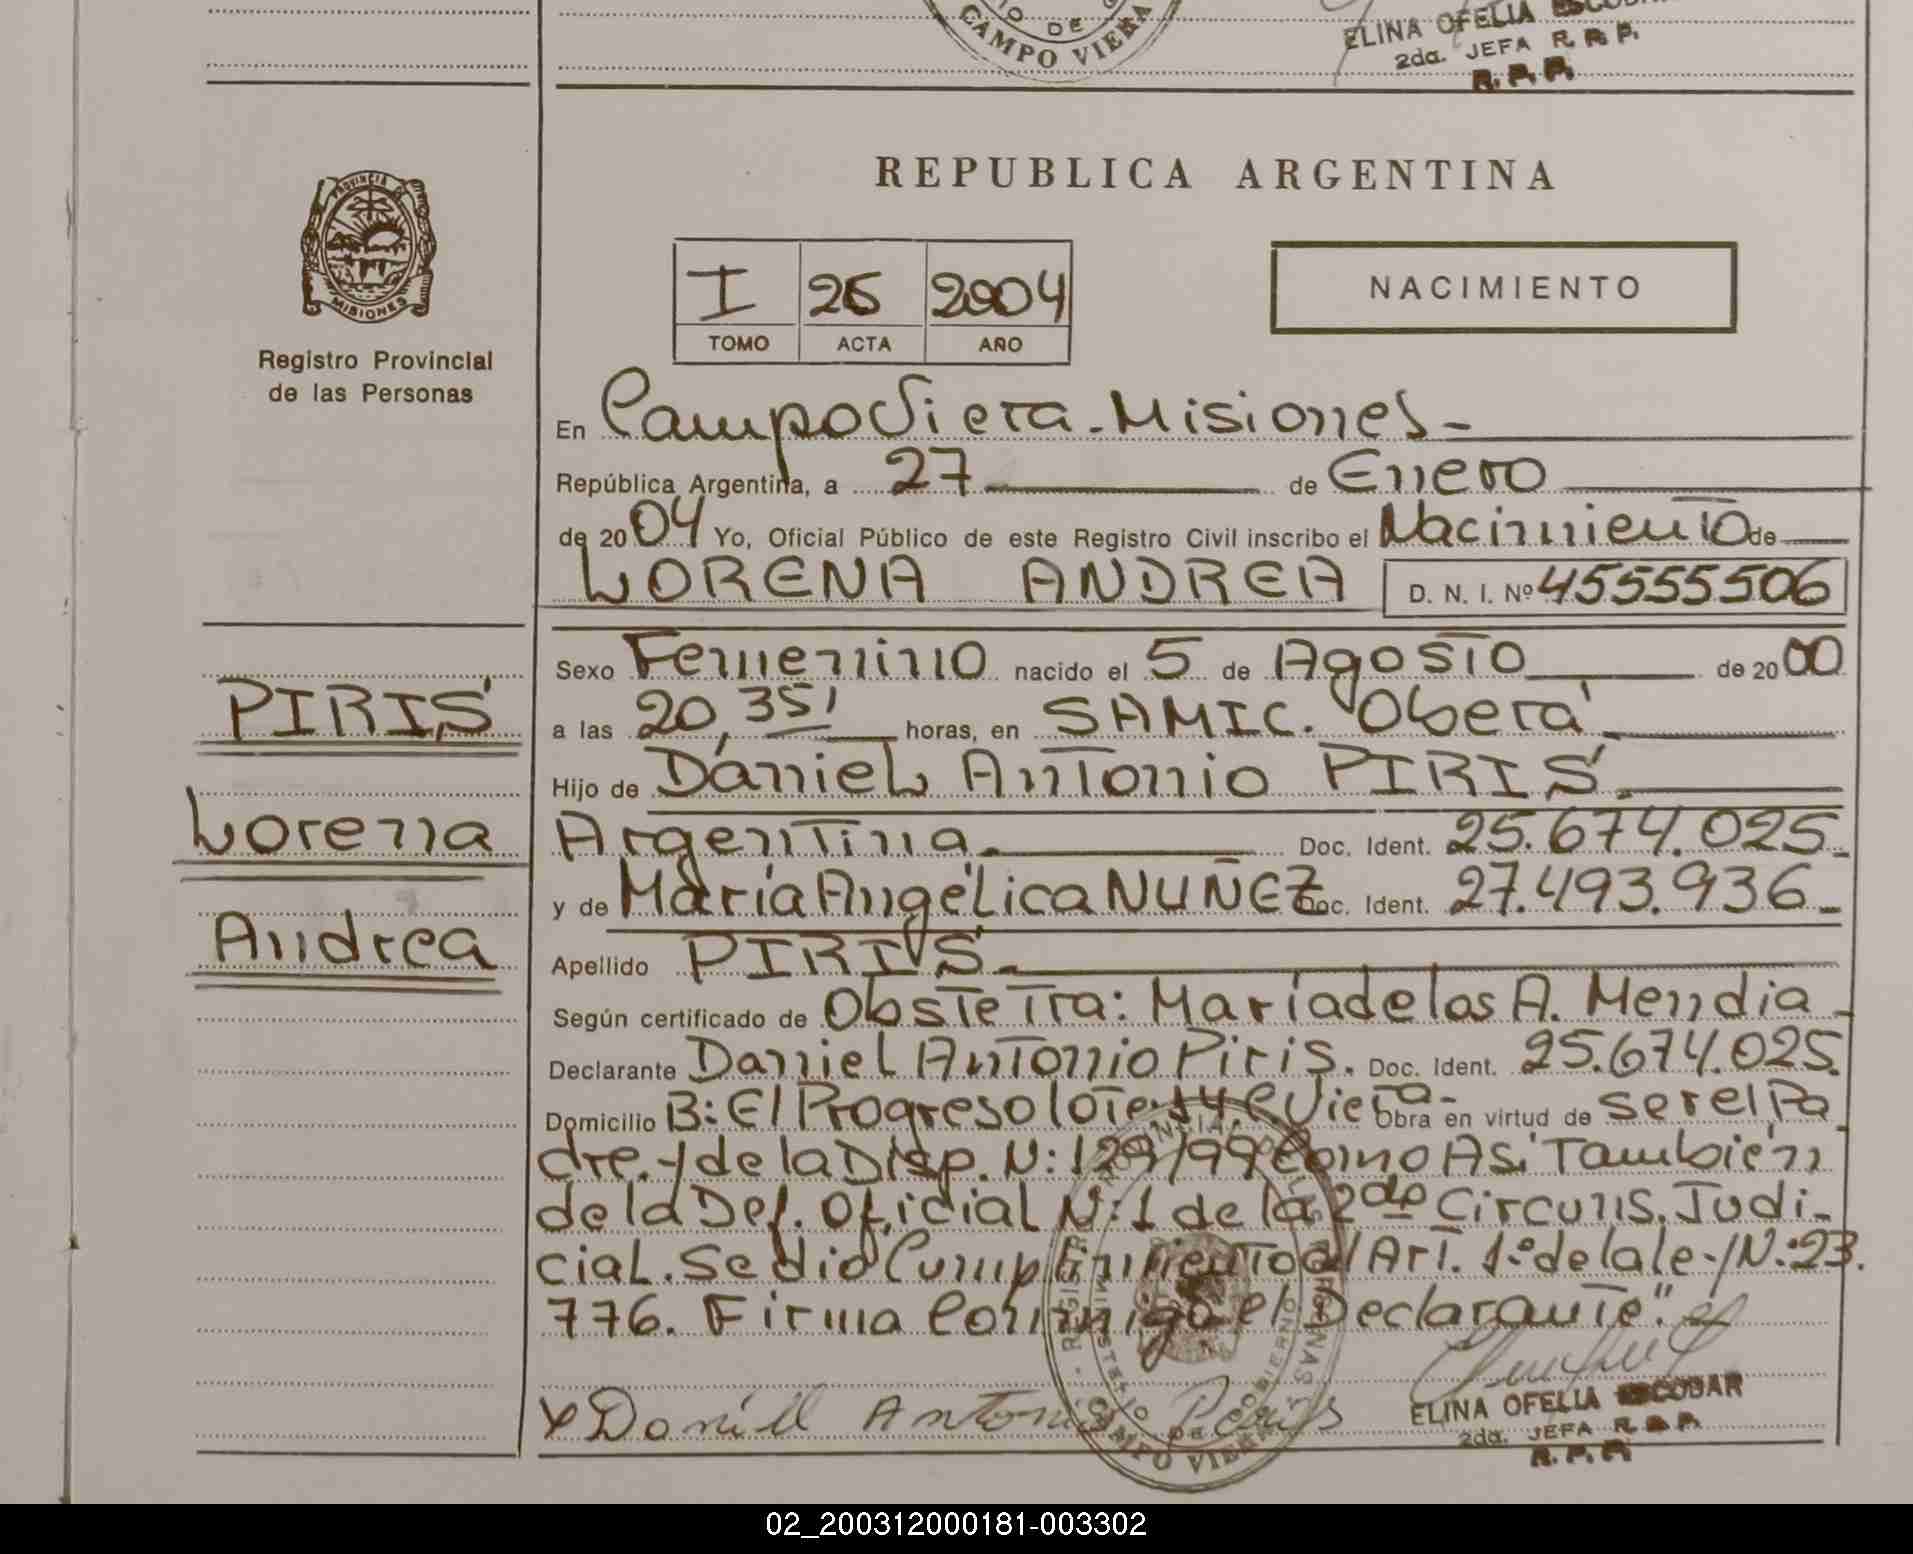 CAMPO VIERA
ELINA OFELIA ESCOBAR
2da. JEFA R. P. P.
R. P. P.
PROVINCIA DE
MISIONES
Registro Provincial
de las Personas
REPUBLICA ARGENTINA
I 26 2004
TOMO ACTA AÑO
NACIMIENTO
En Campo Viera - Misiones -
República Argentina, a 27 de Enero
de 2004 Yo, Oficial Público de este Registro Civil inscribo el Nacimiento de
LORENA ANDREA D. N. I. Nº 45555506
Sexo Femenino nacido el 5 de Agosto de 2000
a las 20,35' horas, en SAMIC. Oberá
Hijo de Daniel Antonio PIRIS.
Argentina. Doc. Ident. 25.674.025
y de María Angélica NUÑEZ Doc. Ident. 27.493.936
Apellido PIRIS.
Según certificado de Obstetra: María de los A. Mendia
Declarante Daniel Antonio Piris. Doc. Ident. 25.674.025.
Domicilio B: El Progreso lote 14 C Viera - Obra en virtud de ser el Pa
dre. y de la Disp. N: 129/99 Como Así También
de la Def. Oficial N: 1 de la 2da Circuns. Judi-
cial. Se dio Cumplimiento al Art. 1º de la ley N: 23.
776. Firma Conmigo el Declarante".
X Daniel Antonio Piris
ELINA OFELIA ESCOBAR
2da. JEFA R. P. P.
R. P. P.
PIRIS
Lorena
Andrea
02_200312000181-003302